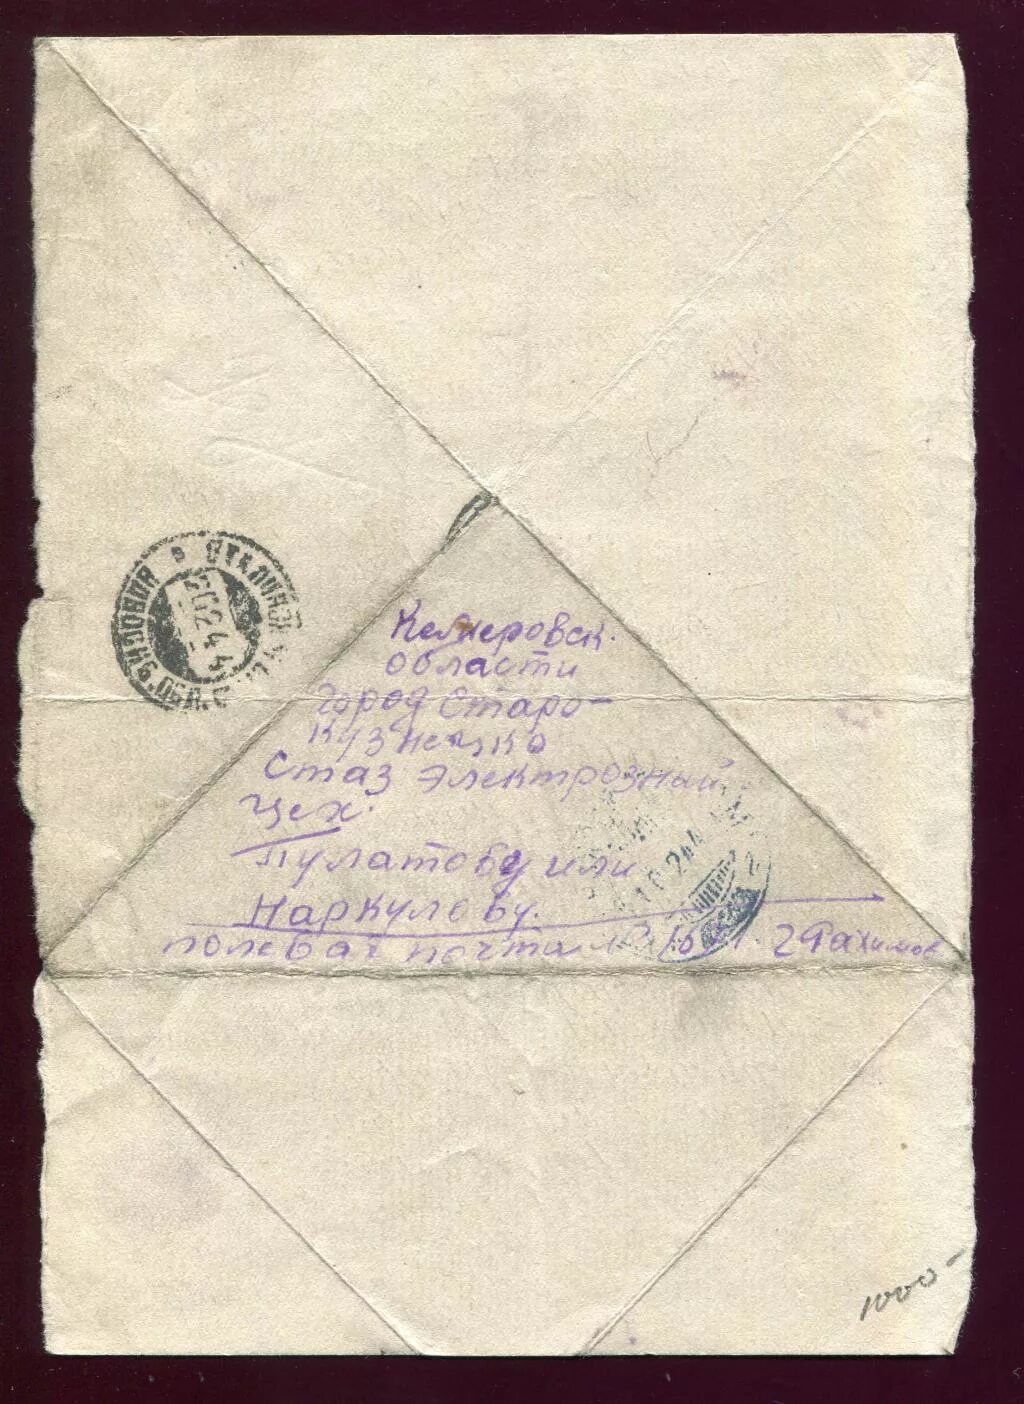 Кемеровск.
области
город Старо-
Кузнецко
Стаз Электрозний
Цех.
Пулатову или
Наркулову.
полевая почта № 2 Рахимов
СТАЛИНСК
ОБЛ.
20 2 44
1000-